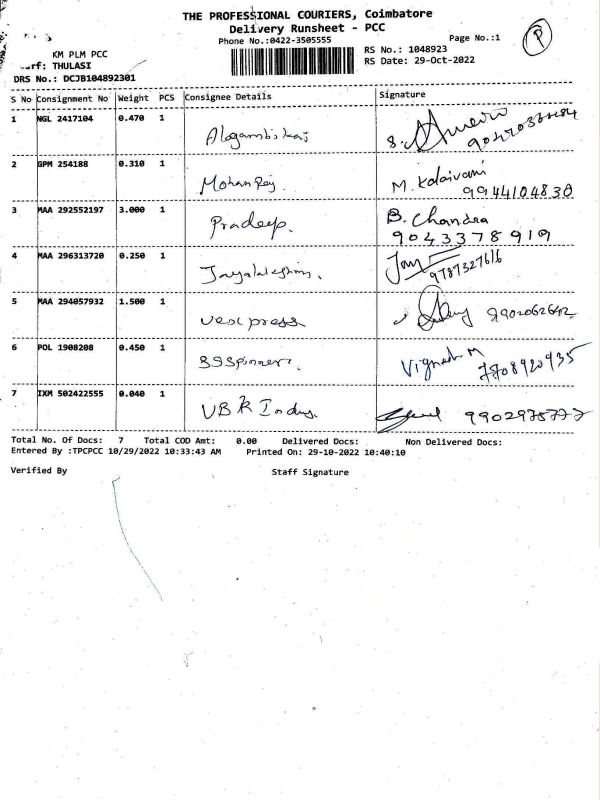 THE PROFESSIONAL COURIERS, Coimbatore
Delivery Runsheet - PCC
Phone No.:0422-3505555
Page No.:1
P
KM PLM PCC
RS No.: 1048923
THULASI
RS Date: 29-Oct-2022
DRS No.: DCJB104892301
S No Consignment No Weight PCS Consignee Details Signature
1 NGL 2417104 0.470 1
2 GPM 254188 0.310 1 MohanRaj. M. Kalaivani
9944104830
3 MAA 292552197 3.000 1 Pradeep. B. Chandra
9043378919
4 MAA 296313720 0.250 1 9787327616
5 MAA 294057932 1.500 1 press
6 POL 1908208 0.450 1 Vignesh M
7708920435
7 IXM 502422555 0.040 1 VBK
Total No. Of Docs: 7 Total COD Amt: 0.00 Delivered Docs: Non Delivered Docs:
Entered By :TPCPCC 10/29/2022 10:33:43 AM Printed On: 29-10-2022 10:40:10
Verified By Staff Signature